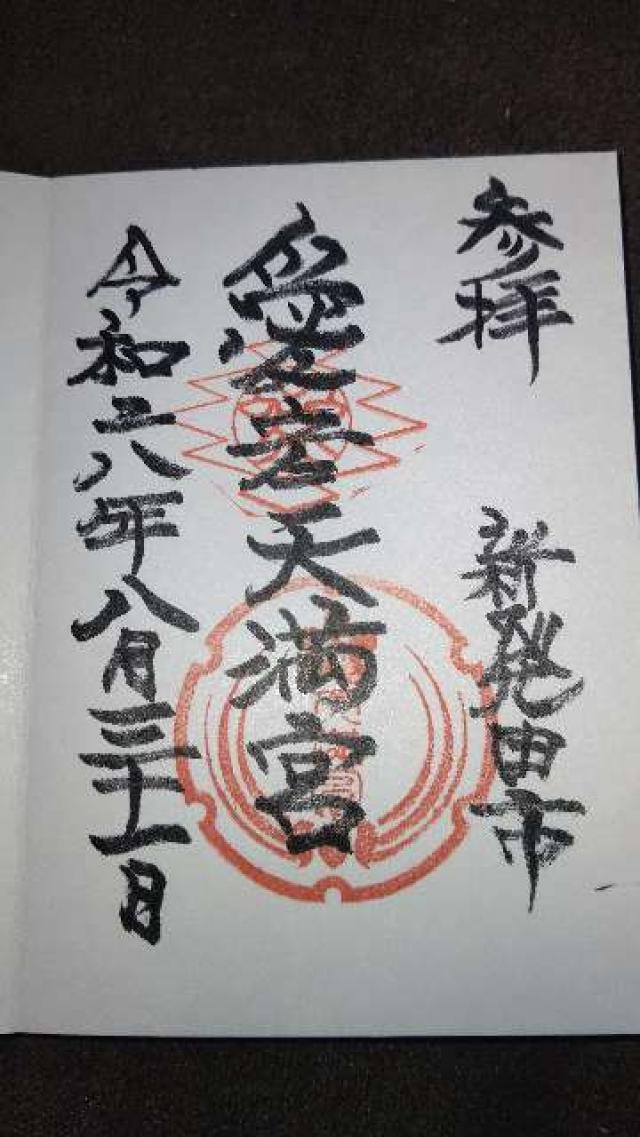 参拝
新発田市
愛宕天満宮
令和六年八月三十一日